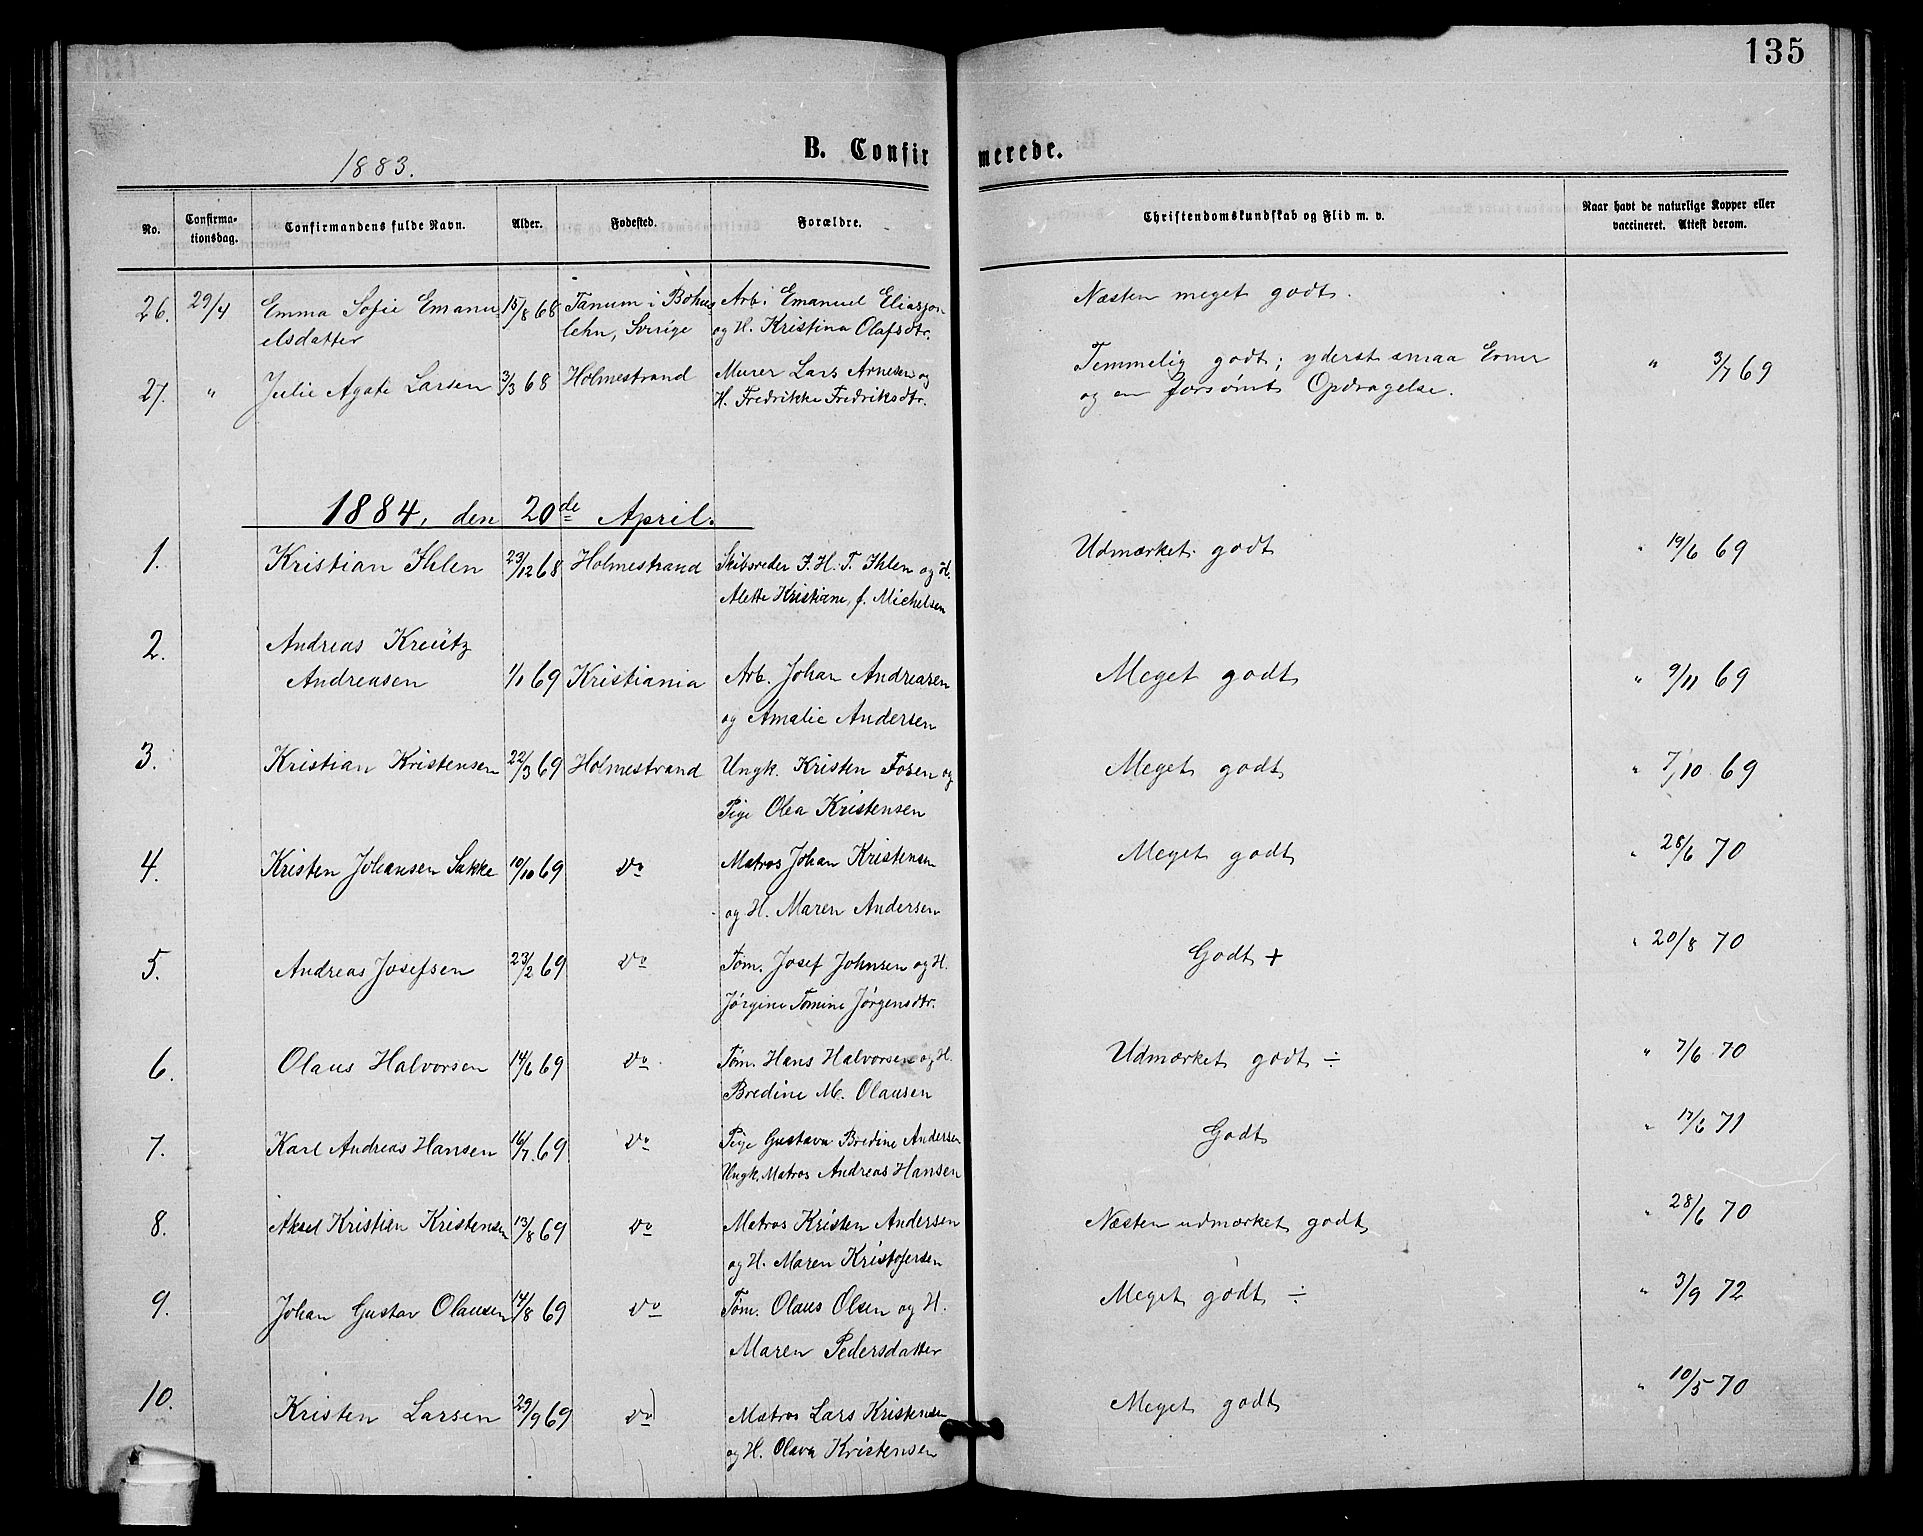 135
B. Confirmerede.
1883.
No. Confirmationsdag. Confirmandens fulde Navn. Alder. Fødested. Forældre. Christendomskundskab og Flid m. v. Naar havt de naturlige Kopper eller vaccineret. Attest derom.
26. 29/4 Emma Sofie Emanu 15/8 68 Tanum i Bohus Arb. Emanuel Eliasson Næsten meget godt.
elsdatter lehn, Sverige og H. Kristina Olafsdtr.
27. " Julie Agate Larsen 3/3 68 Holmestrand Murer Lars Arnesen og Temmelig godt; yderst smaa Evner " 3/7 69
H. Fredrikke Fredriksdtr. og en forsømt Opdragelse.
1884, den 20de April.
1. Kristian Ihlen 23/12 68 Holmestrand Skibsreder J. H. T. Ihlen og H. Udmærket godt " 19/6 69
Alette Kristiane, f. Michelsen
2. Andreas Kreütz
Andreasen 1/1 69 Kristiania Arb. Johan Andreasen Meget godt " 9/11 69
og Amalie Andersen
3. Kristian Kristensen 22/3 69 Holmestrand Ungk. Kristen Foren og Meget godt " 7/10 69
Pige Olea Kristensen
4. Kristen Johansen Sakke 10/10 69 do Matros Johan Kristensen Meget godt " 28/6 70
og H. Maren Andersen
5. Andreas Josefsen 23/2 69 do Tøm. Josef Johnsen og H. Godt + " 20/8 70
Jørgine Tomine Jørgensdtr.
6. Olaus Halvorsen 14/6 69 do Tøm. Hans Halvorsen og H. Udmærket godt ÷ " 7/6 70
Bredine M. Olausen
7. Karl Andreas Hansen 16/7 69 do Pige Gustava Bredine Andersen Godt " 17/6 71
Ungk. Matros Andreas Hansen
8. Aksel Kristian Kristensen 13/8 69 do Matros Kristen Andersen Næsten udmærket godt " 28/6 70
og H. Maren Kristofersen
9. Johan Gustav Olausen 14/8 69 do Tøm. Olaus Olsen og H. Meget godt ÷ " 3/9 72
Maren Pedersdatter
10. Kristen Larsen 29/9 69 do Matros Lars Kristensen Meget godt " 10/5 70
og H. Olava Kristensen